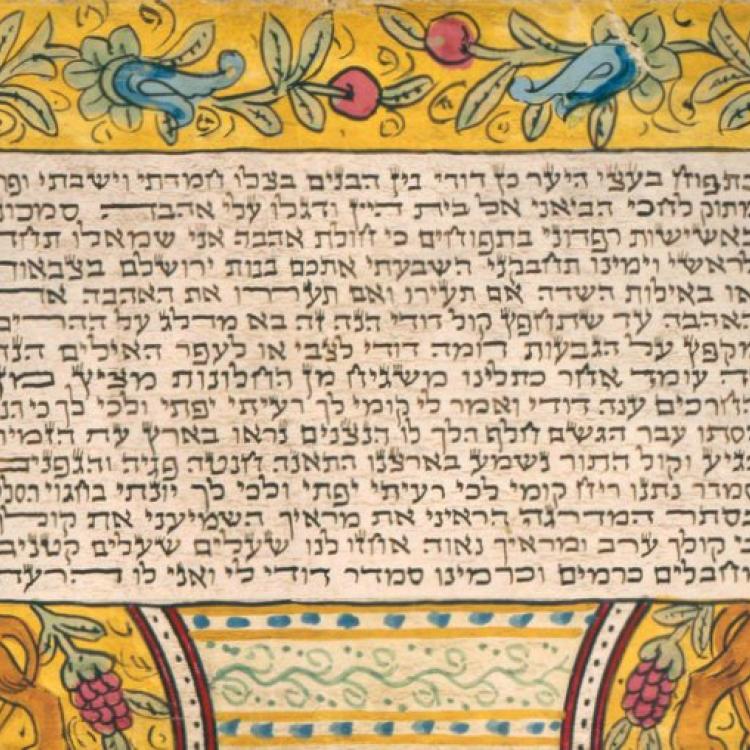 כתפוח בעצי היער כן דודי בין הבנים בצלו חמדתי וישבתי ופר
מתוק לחכי הביאני אל בית היין ודגלו עלי אהבה סמכוני
באשישות רפדוני בתפוחים כי חולת אהבה אני שמאלו תחת
לראשי וימינו תחבקני השבעתי אתכם בנות ירושלם בצבאות
או באילות השדה אם תעירו ואם תעררו את האהבה
האהבה עד שתחפץ קול דודי הנה זה בא מדלג על ההרים
מקפץ על הגבעות דומה דודי לצבי או לעפר האילים הנה
זה עומד אחר כתלינו משגיח מן החלונות מציץ מן
החרכים ענה דודי ואמר לי קומי לך רעיתי יפתי ולכי לך כי הנ
הסתו עבר הגשם חלף הלך לו הנצנים נראו בארץ עת הזמיר
הגיע וקול התור נשמע בארצנו התאנה חנטה פגיה והגפנים
סמדר נתנו ריח קומי לכי רעיתי יפתי ולכי לך יונתי בחגוי הסל
בסתר המדרגה הראיני את מראיך השמיעני את קולך
כי קולך ערב ומראיך נאוה אחזו לנו שעלים שעלים קטנים
מחבלים כרמים וכרמינו סמדר דודי לי ואני לו הרעה